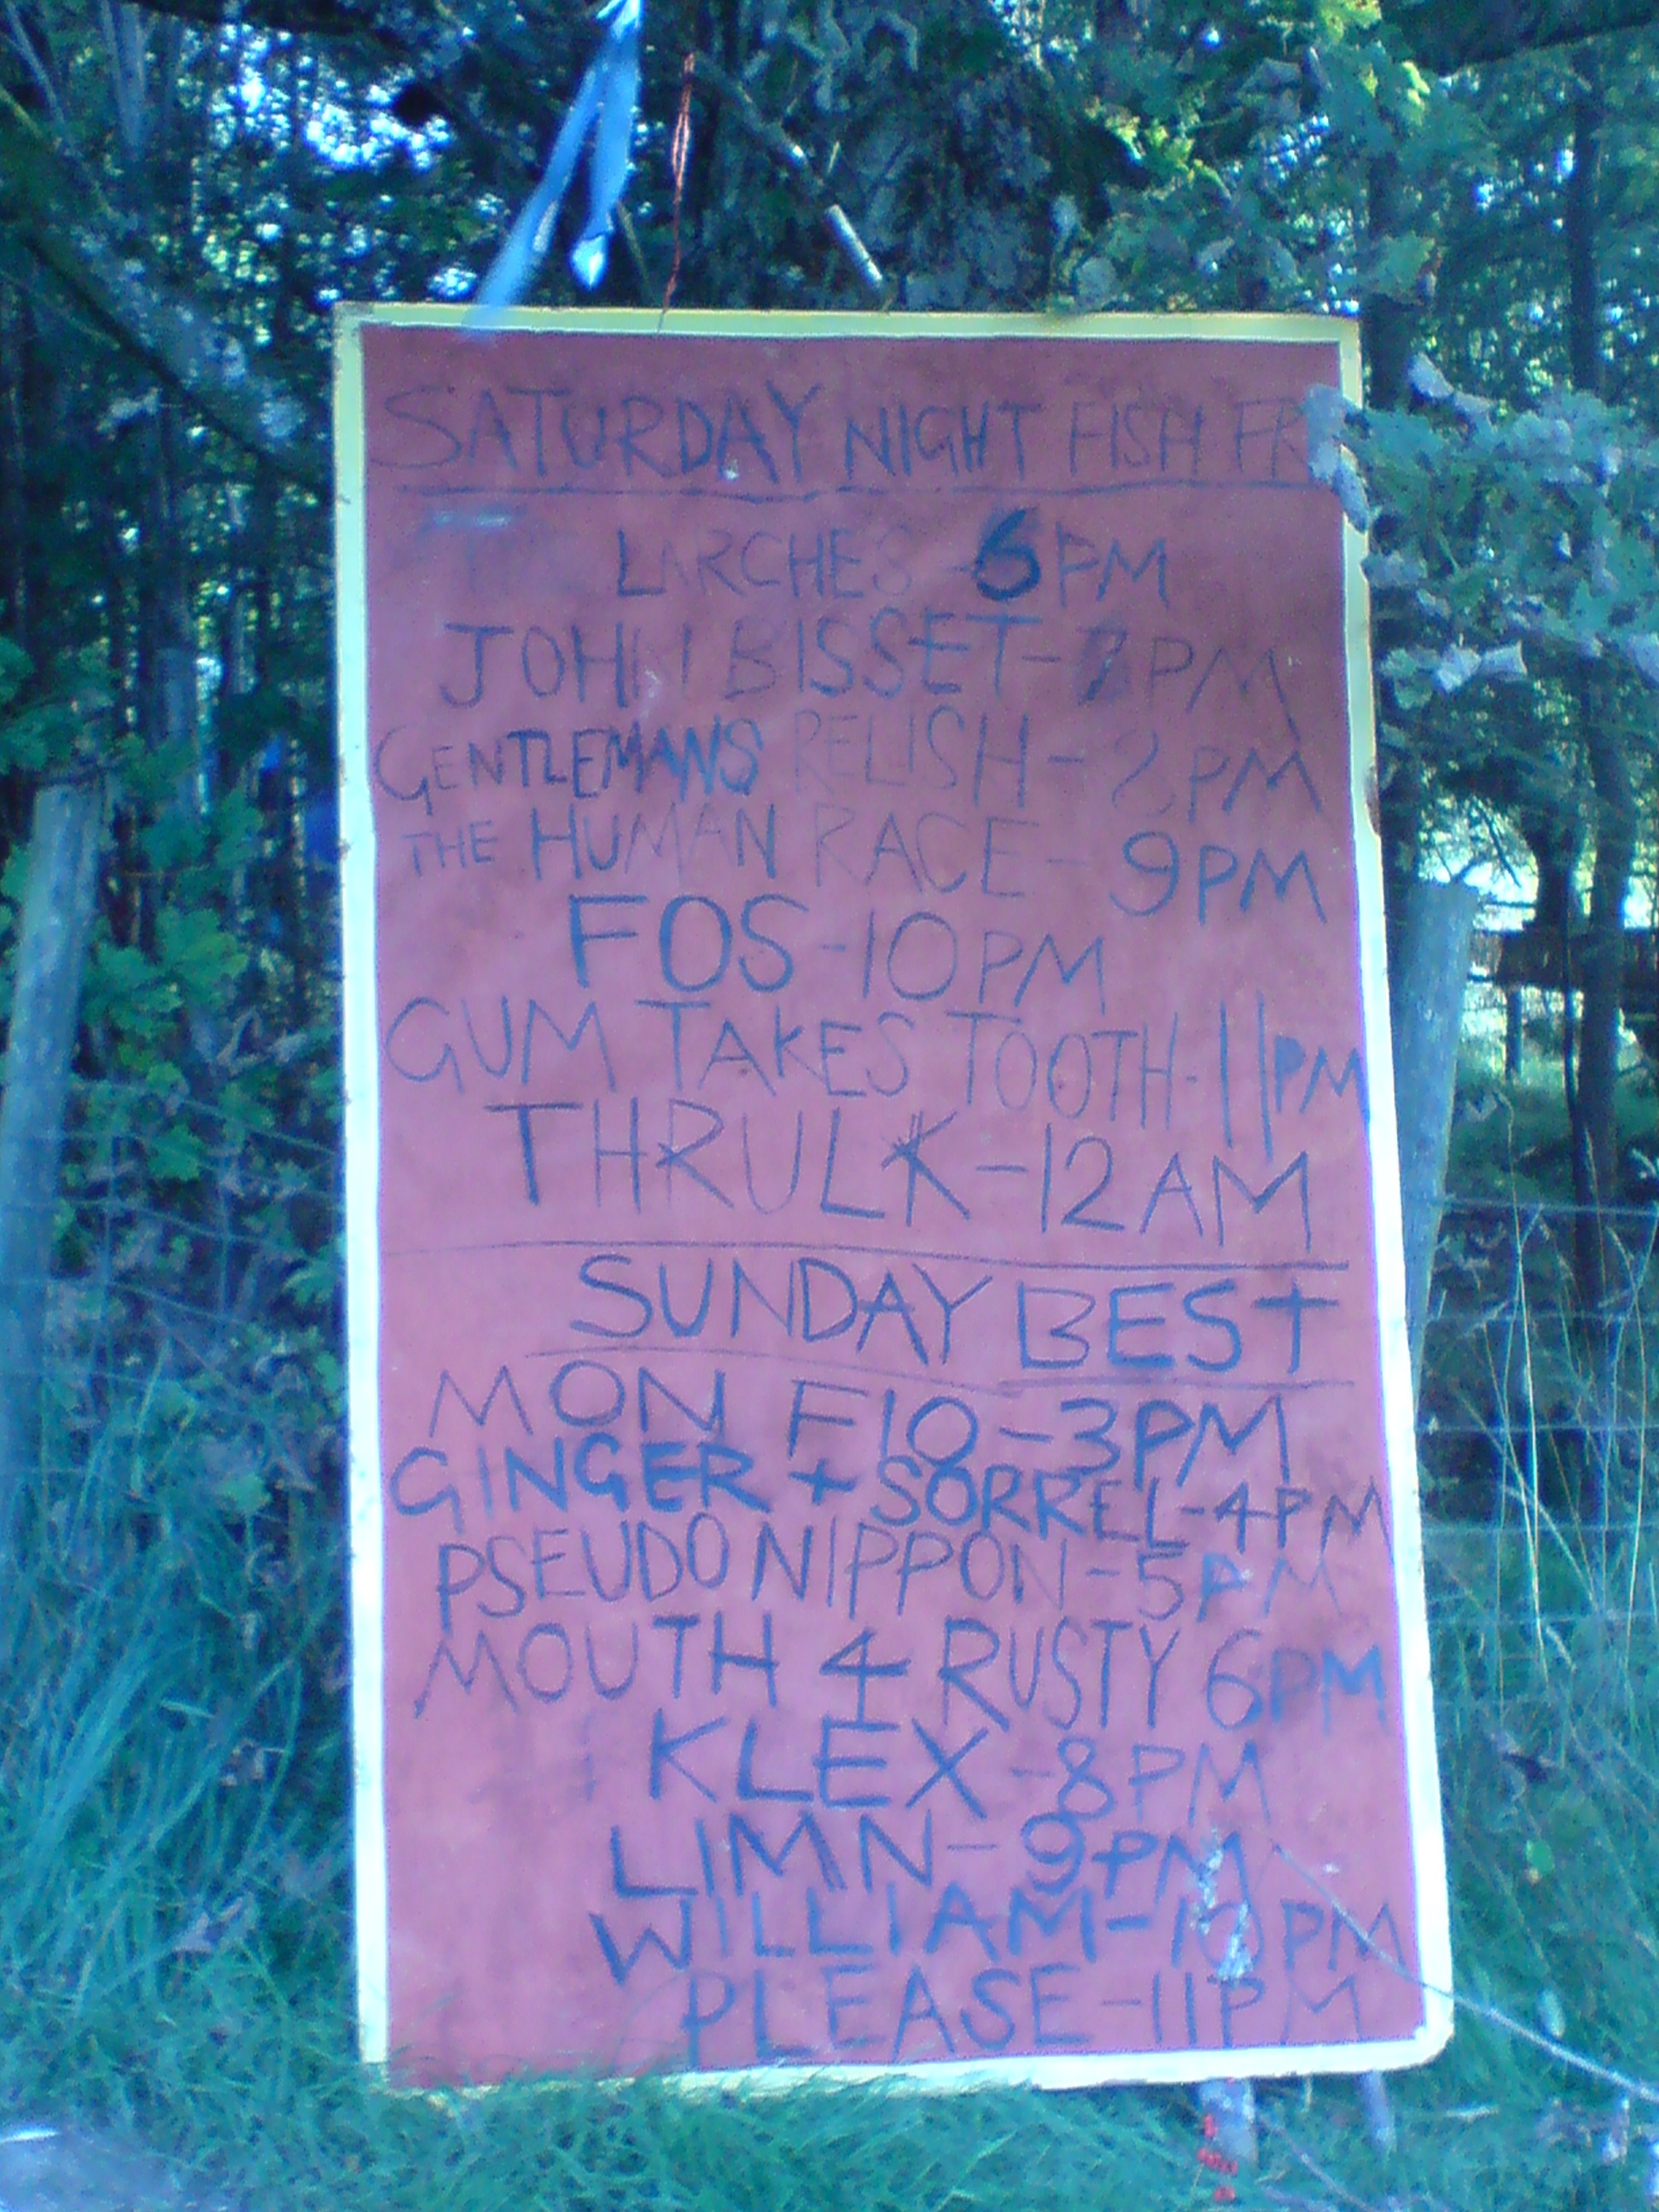 SATURDAY NIGHT FISH FR
LARCHES - 6PM
JOHN BISSET - 7PM
GENTLEMANS RELISH - 8PM
THE HUMAN RACE - 9PM
FOS - 10PM
GUM TAKES TOOTH - 11PM
THRULK - 12AM
SUNDAY BEST
MON FIO - 3PM
GINGER + SORREL - 4PM
PSEUDO NIPPON - 5PM
MOUTH 4 RUSTY 6PM
KLEX - 8PM
LIMN - 9PM
WILLIAM - 10PM
PLEASE - 11PM